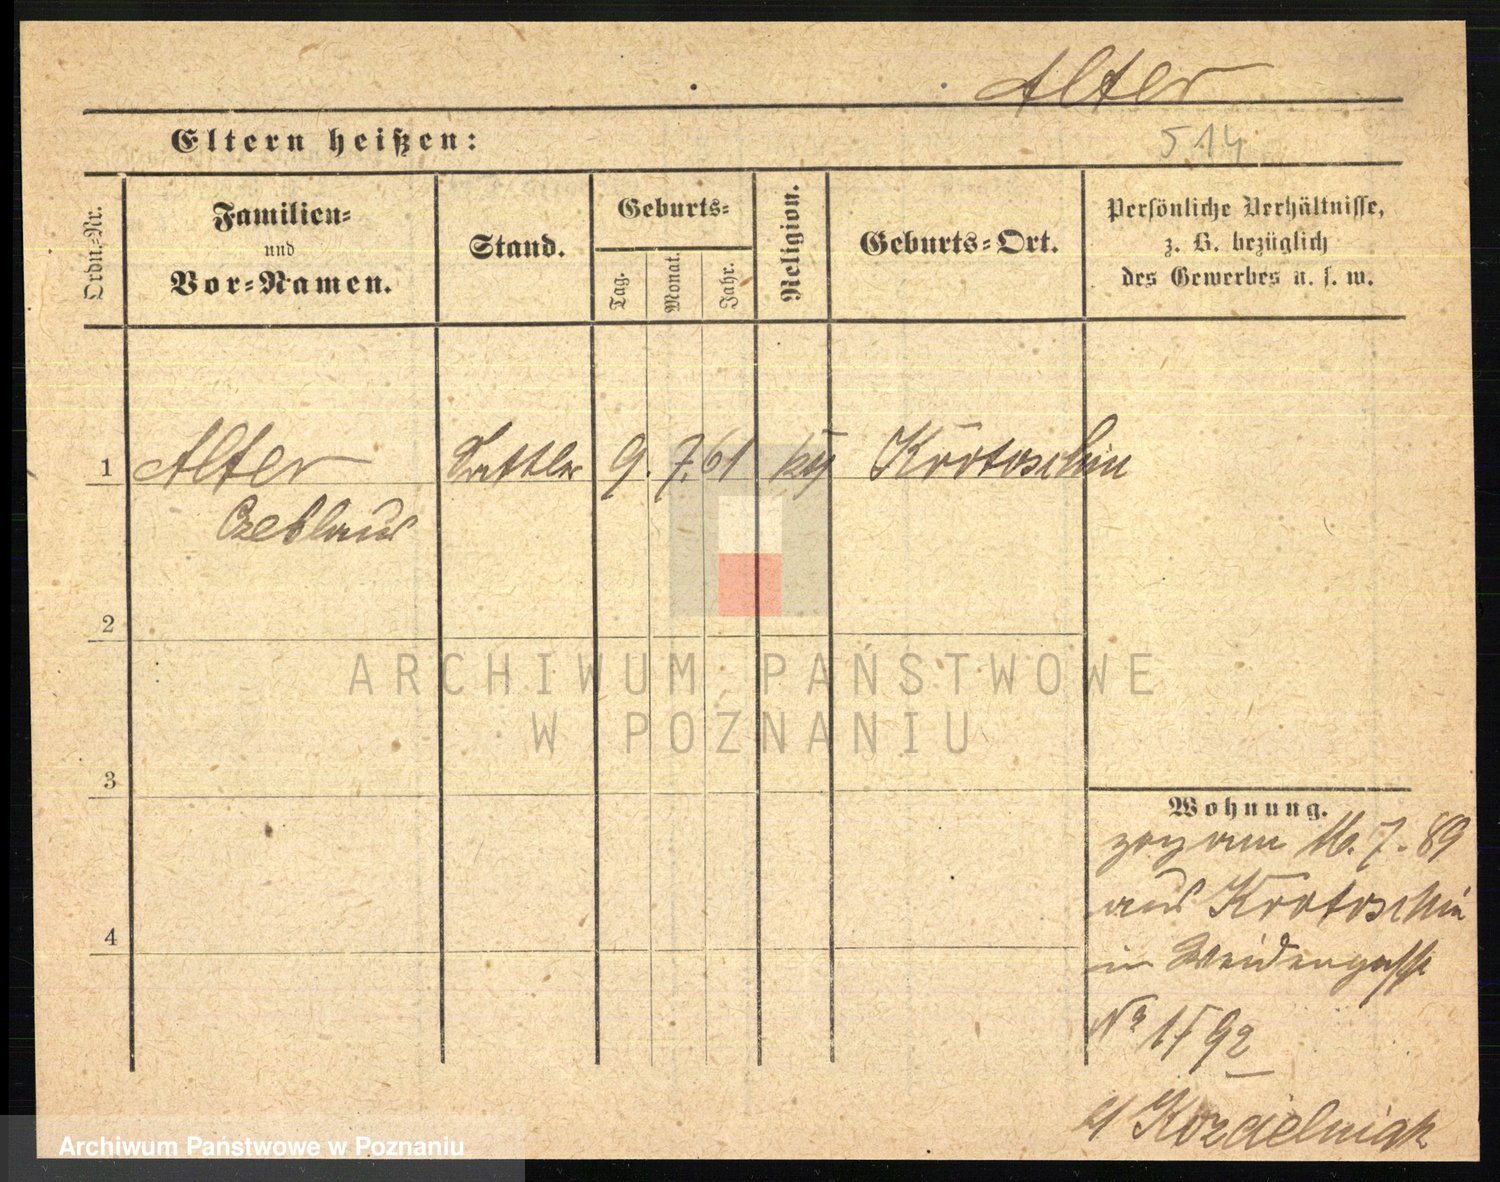 Alter
514
Eltern heißen:
Ordn.-Nr.
Familien-
und
Vor-Namen.
Stand.
Geburts-
Tag.
Monat.
Jahr.
Religion.
Geburts-Ort.
Persönliche Verhältnisse,
z. B. bezüglich
des Gewerbes u. s. w.
1 Alter Sattler 9. 7. 61 Krotoschin
Ceslaus
2
3
4
ARCHIWUM PAŃSTWOWE
W POZNANIU
Wohnung.
zog am 16. 7. 89
aus Krotoschin
in
No
Kozcielniak
Archiwum Państwowe w Poznaniu